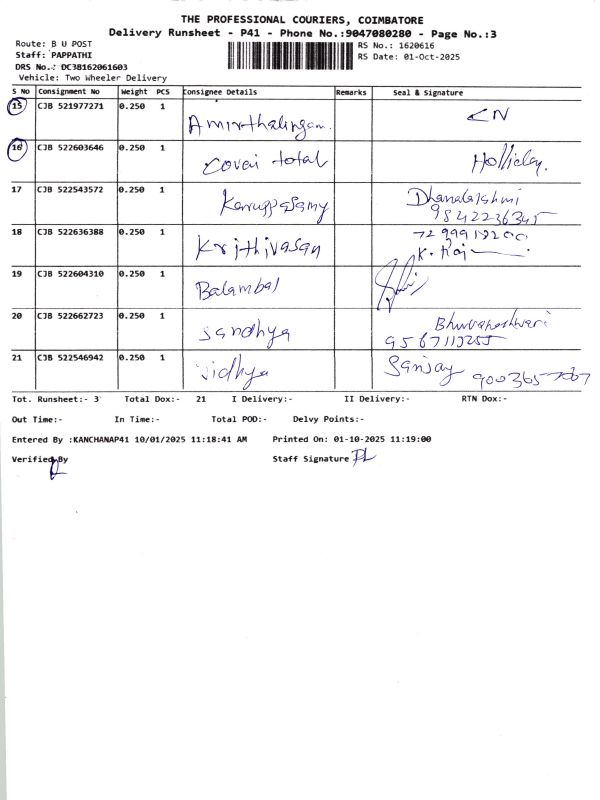 THE PROFESSIONAL COURIERS, COIMBATORE
Delivery Runsheet - P41 - Phone No.:9047080280 - Page No.:3
Route: B U POST
RS No.: 1620616
Staff: PAPPATHI
RS Date: 01-Oct-2025
DRS No.: DC38162061603
Vehicle: Two Wheeler Delivery
S No Consignment No Weight PCS Consignee Details Remarks Seal & Signature
15 CJB 521977271 0.250 1 Amirthalingam
16 CJB 522603646 0.250 1 Covai total Holliday.
17 CJB 522543572 0.250 1 Karuppasamy Dhanalakshmi
9842236345
18 CJB 522636388 0.250 1 Krithivasan
K. Raj
19 CJB 522604310 0.250 1 Balambal
20 CJB 522662723 0.250 1 Sandhya Bhuvaneshwari
21 CJB 522546942 0.250 1 Vidhya Sanjay
Tot. Runsheet:- 3 Total Dox:- 21 I Delivery:- II Delivery:- RTN Dox:-
Out Time:- In Time:- Total POD:- Delvy Points:-
Entered By :KANCHANAP41 10/01/2025 11:18:41 AM Printed On: 01-10-2025 11:19:00
Verified By Staff Signature